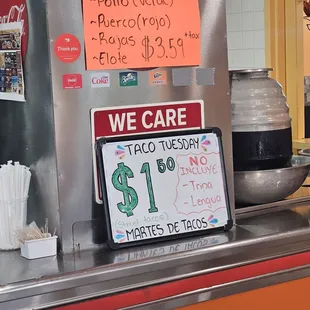 Puerco(rojo)
-Rajas $3.59 +tax
-Elote
Thank you
Coke
WE CARE
TACO TUESDAY
$1.50
NO
Incluye
-Tripa
-Lengua
MARTES DE TACOS